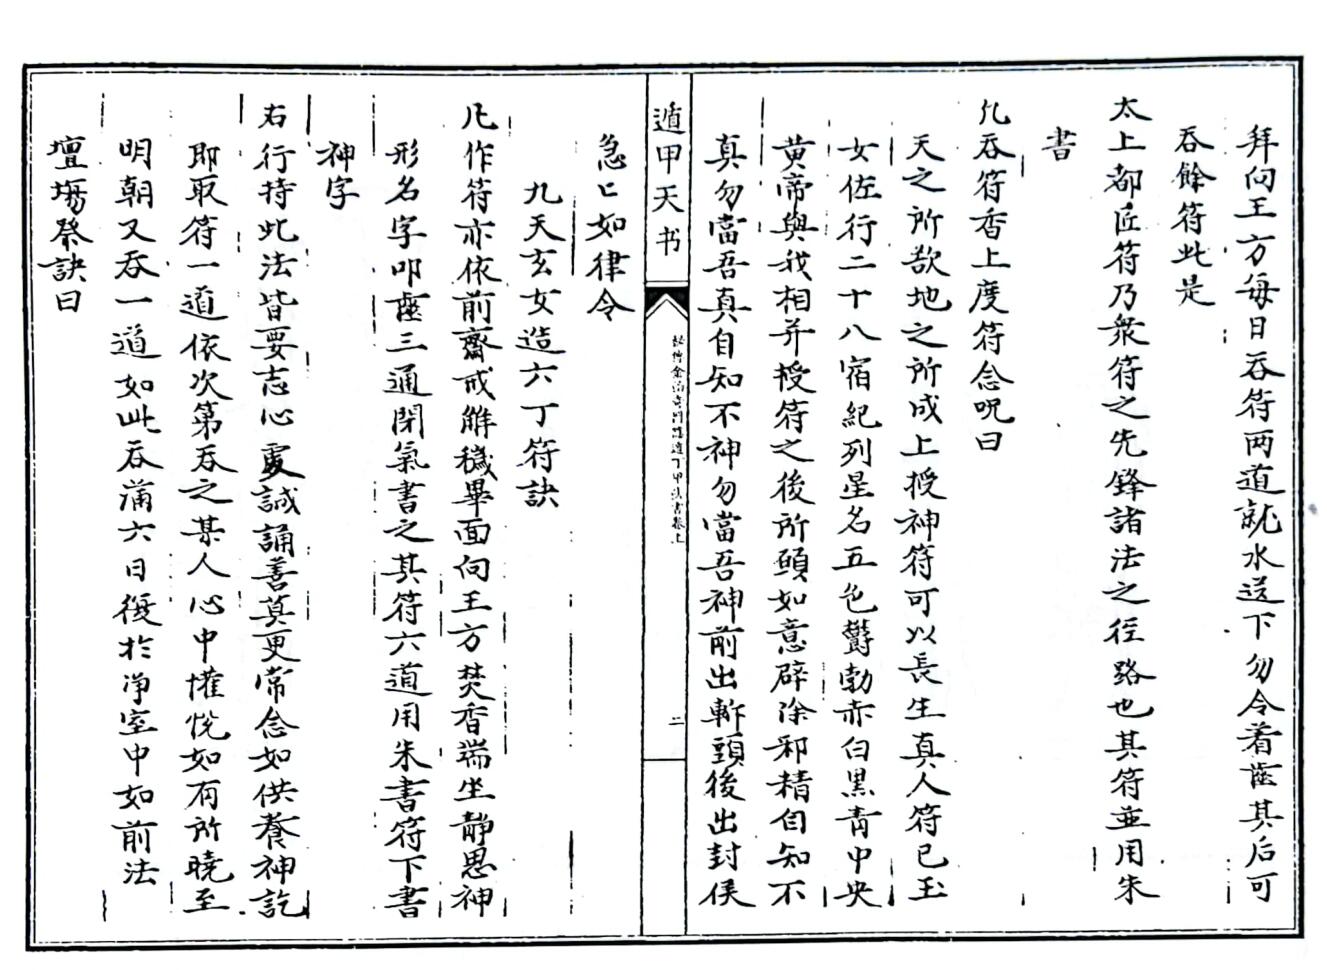 拜向王方每日吞符两道就水送下勿令着齒其后可
吞餘符此是
太上都匠符乃衆符之先鋒諸法之徑路也其符並用朱
書
凡吞符香上度符念呪曰
天之所欲地之所成上授神符可以長生真人符已玉
女佐行二十八宿紀列星名五色欝勃赤白黒青中央
黄帝與我相并授符之後所願如意辟除邪精自知不
真勿當吾真自知不神勿當吾神前出斬頭後出封侯
遁甲天书
二
急匕如律令
九天玄女造六丁符訣
凡作符亦依前齋戒解穢畢面向王方焚香端坐静思神
形名字叩齒三通閉氣書之其符六道用朱書符下書
神字
右行持此法皆要志心虔誠誦善莫更常念如供養神訖
即取符一道依次第吞之某人心中懽悅如有所曉至
明朝又吞一道如此吞蒲六日復於净室中如前法
壇場祭訣曰